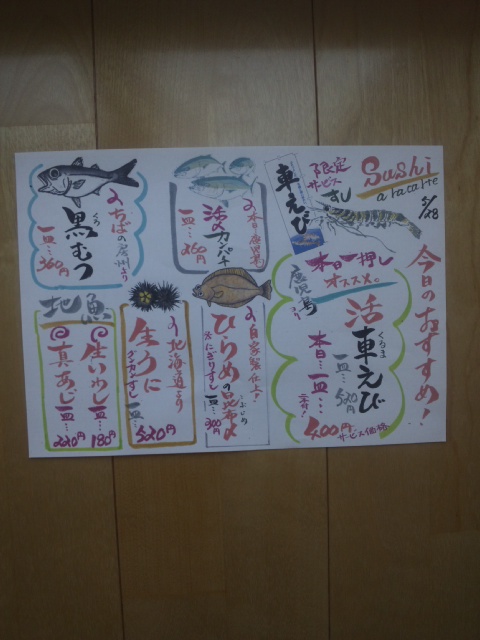 Sushi
a racarte
5/28
今日のおすすめ!
限定
サービス
すし
車えび
本日一押し
オススメ。
鹿児島より
活車えび
くるま
一皿…520円
本日…一皿…
400円
サービス価格
本日鹿児島
活〆カンパチ
一皿…360円
自家製仕上!
ひらめの昆布〆
こぶじめ
にぎりすし
一皿…300円
ちばの房州より
黒むつ
くろ
一皿…360円
北海道より
生うに
グンカンすし
一皿…
520円
地魚
生いわし
一皿…
180円
真あじ
一皿…
220円